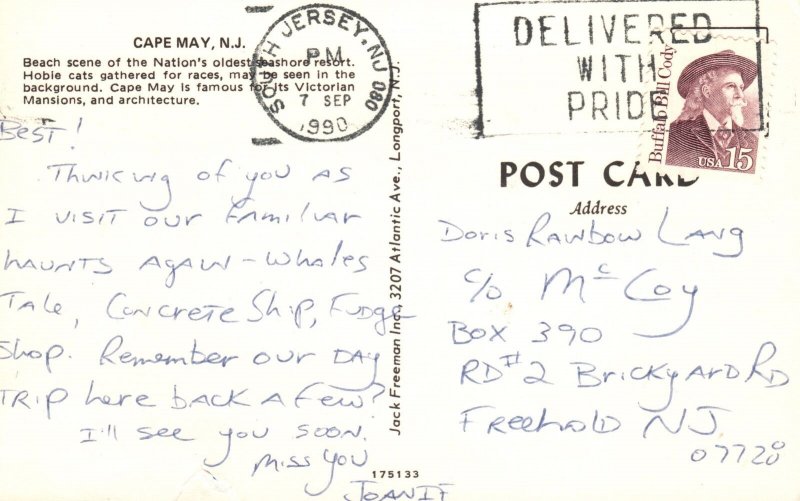 CAPE MAY, N.J.
Beach scene of the Nation's oldest seashore resort.
Hobie cats gathered for races, may be seen in the
background. Cape May is famous for its Victorian
Mansions, and architecture.
SOUTH JERSEY, NJ 080
PM
7 SEP
1990
DELIVERED
WITH
PRIDE
Buffalo Bill Cody
USA 15
Best!
Thinking of you as
I visit our familiar
haunts again - Whales
Tale, Concrete Ship, Fudge
Shop. Remember our day
trip here back a few?
I'll see you soon.
Miss you
Joanie
Jack Freeman Inc., 3207 Atlantic Ave., Longport, N.J.
175133
POST CARD
Address
Doris Rainbow Lang
c/o McCoy
Box 390
RD #2 Brickyard Rd
Freehold NJ
07728